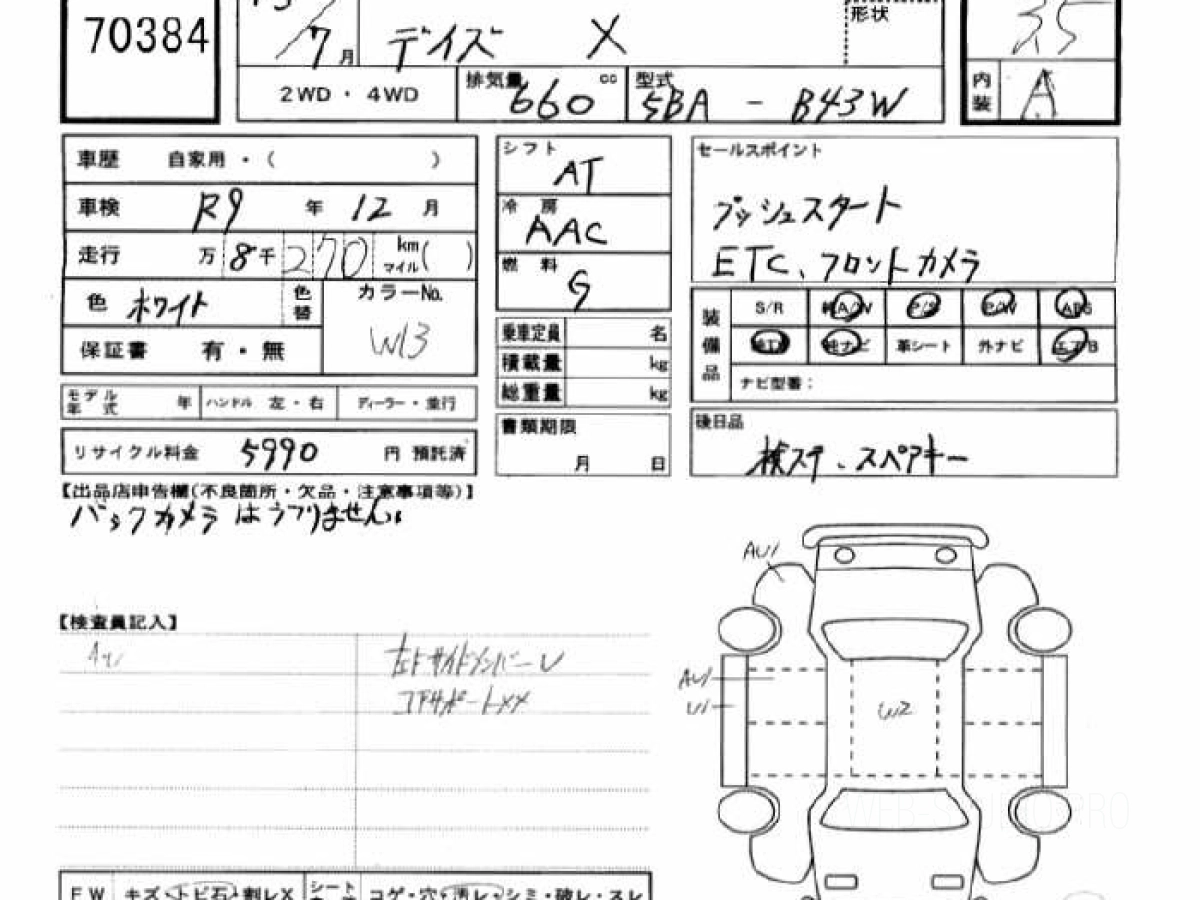 70384
7月 デイズ X 形状 3.5
2WD・4WD 排気量 660 cc 型式 5BA - B43W 内装 A
車歴 自家用・( )
車検 R9 年 12 月
走行 万 8 千 270 km マイル ( )
色 ホワイト 色替 カラーNo. W13
保証書 有・無
モデル年式 年 ハンドル 左・右 ディーラー・並行
リサイクル料金 5990 円 預託済
シフト AT
冷房 AAC
燃料 G
乗車定員 名
積載量 kg
総重量 kg
書類期限 月 日
セールスポイント
プッシュスタート
ETC、フロントカメラ
装備品 S/R P/S P/W ABS
純ナビ 革シート 外ナビ エアB
ナビ型番：
後日品
検ステ、スペアキー
【出品店申告欄(不良箇所・欠品・注意事項等)】
バックカメラはうつりません。
【検査員記入】
サイドメンバーU
コアサポートXX
AU1
AU1
U1
W2
FW キズ・トビ石・割レX シート コゲ・穴・汚レ・シミ・破レ・スレ